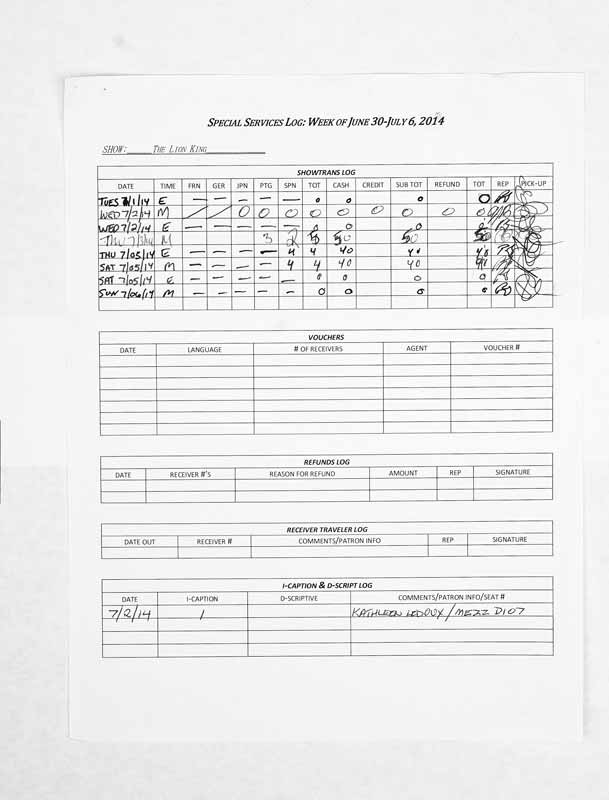 SPECIAL SERVICES LOG: WEEK OF JUNE 30-JULY 6, 2014
SHOW: THE LION KING
SHOWTRANS LOG
DATE TIME FRN GER JPN PTG SPN TOT CASH CREDIT SUB TOT REFUND TOT REP PICK-UP
TUES 7/1/14 E — — — — — 0 0 0 0
WED 7/2/14 M / / 0 0 0 0 0 0 0 0 0
WED 7/2/14 E — — — — — 0 0 0 0
THU 7/3/14 M 3 2 5 50 50 50
THU 7/03/14 E — — — — 4 4 40 40 40
SAT 7/05/14 M — — — — 4 4 40 40 40
SAT 7/05/14 E — — — — — 0 0 0 0
SUN 7/06/14 M — — — — — 0 0 0 0
VOUCHERS
DATE LANGUAGE # OF RECEIVERS AGENT VOUCHER #
REFUNDS LOG
DATE RECEIVER #'S REASON FOR REFUND AMOUNT REP SIGNATURE
RECEIVER TRAVELER LOG
DATE OUT RECEIVER # COMMENTS/PATRON INFO REP SIGNATURE
I-CAPTION & D-SCRIPT LOG
DATE I-CAPTION D-SCRIPTIVE COMMENTS/PATRON INFO/SEAT #
7/2/14 1 KATHLEEN LEDOUX / MEZZ D107